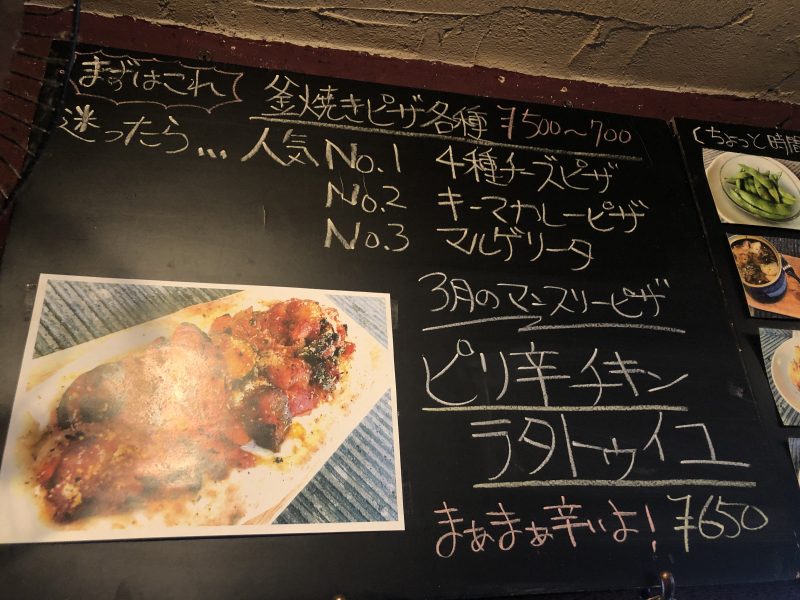 まずはこれ
釜焼きピザ各種 ¥500〜700
迷ったら... 人気No.1 4種チーズピザ
No.2 キーマカレーピザ
No.3 マルゲリータ
3月のマンスリーピザ
ピリ辛チキン
ラタトゥイユ
まぁまぁ辛いよ! ¥650
(ちょっと時間